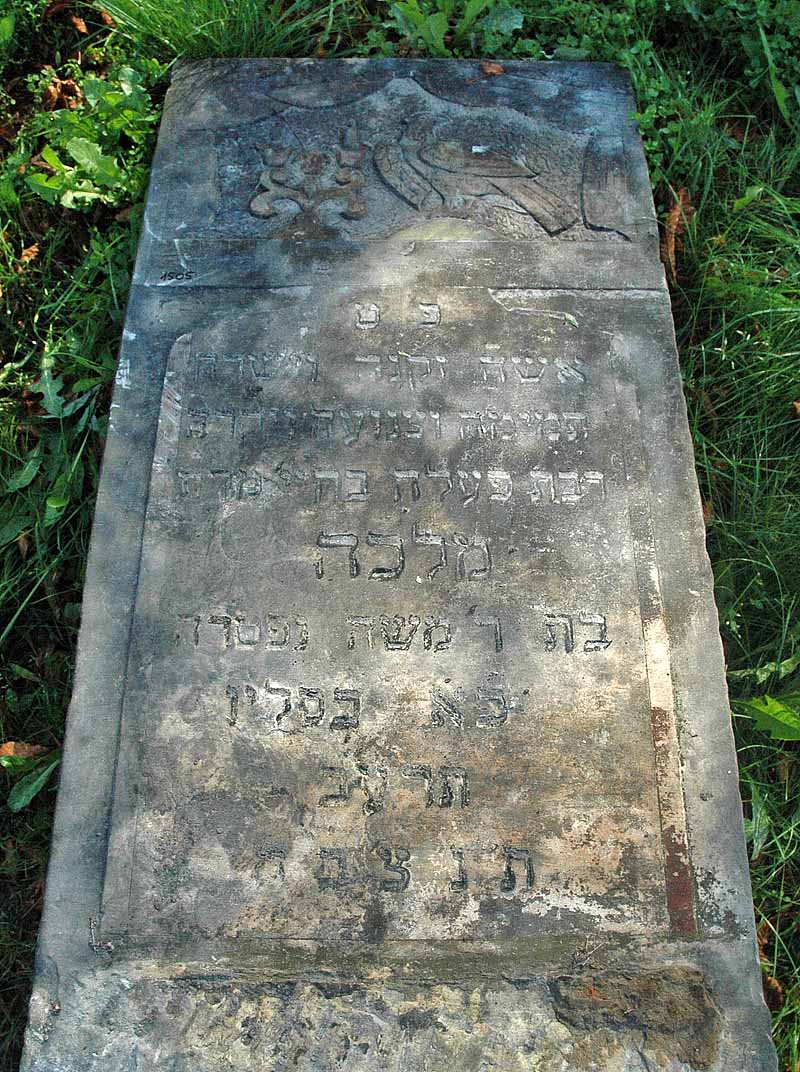 1505
פ ט
אשה זקנה וישרה
תמימה וצנועה
רבת פעלה בה״ י מרת
מלכה
בת ר׳ משה נפטרה
כא כסליו
תרעב
ת נ צ ב ה